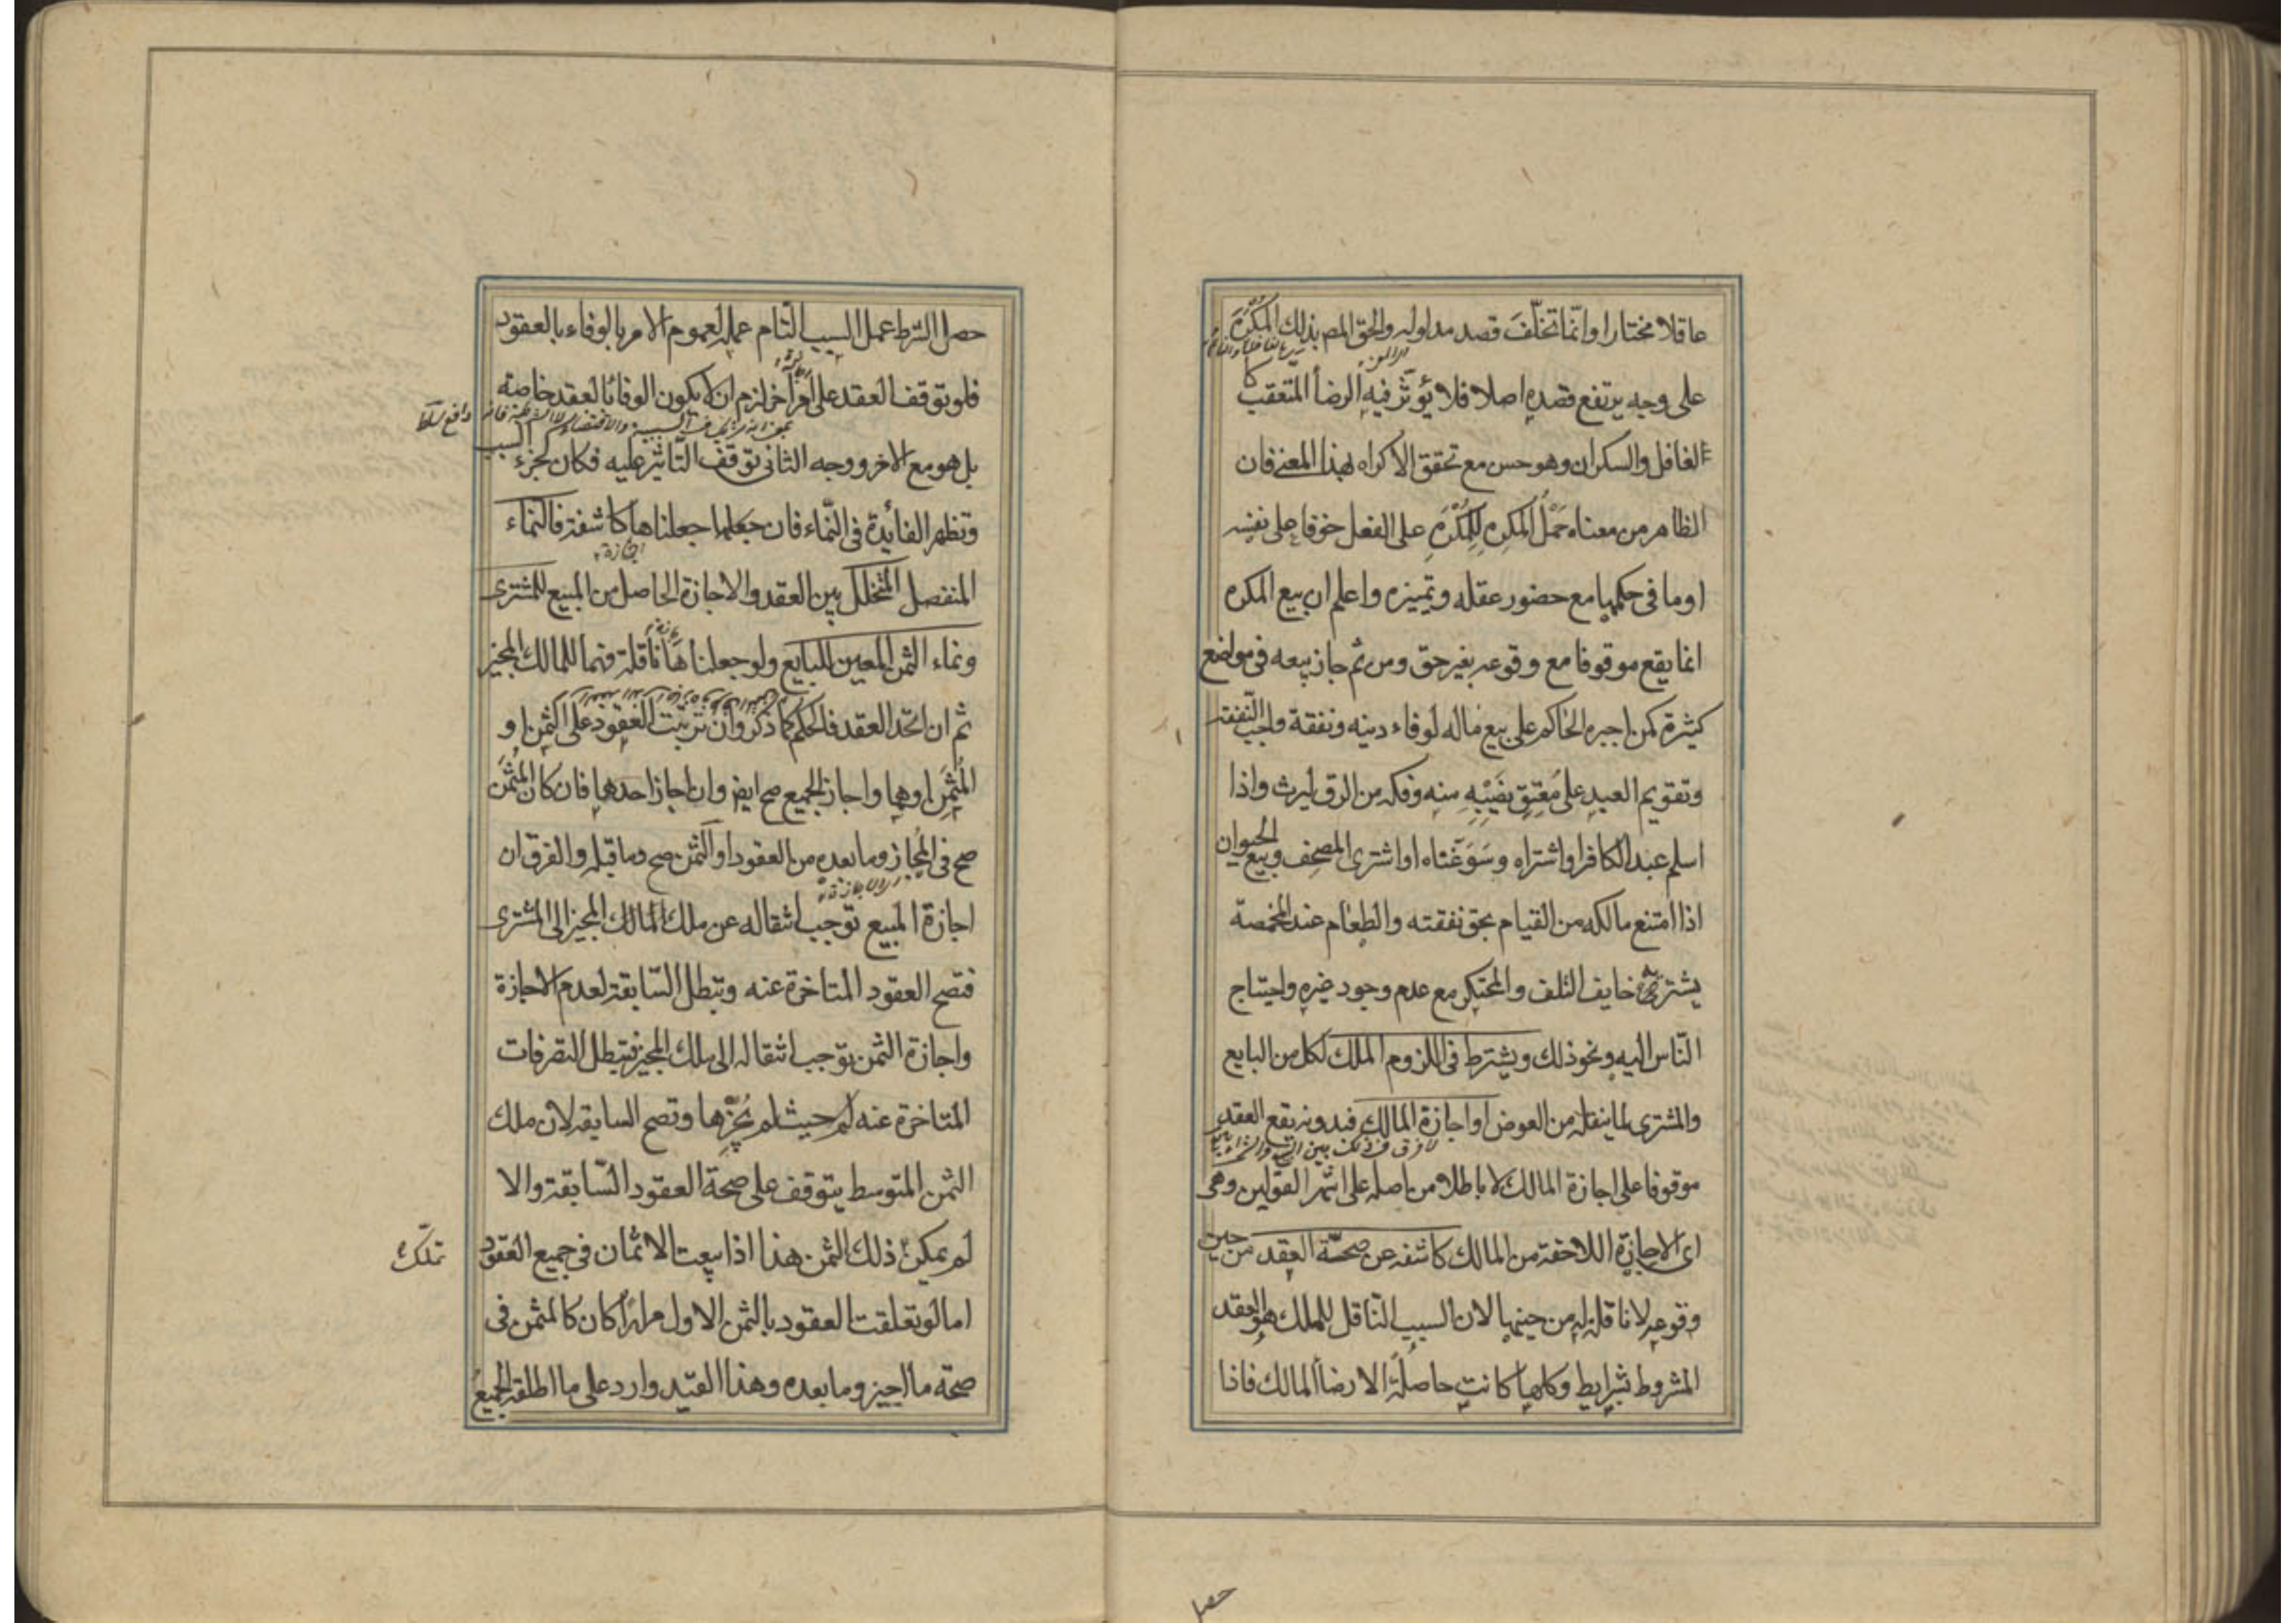 عاقلا مختارا وانّما تخلّفَ قصد مدلوله والحق المص بذلك المُكْرَه
على وجه يرتفع قصده اصلا فلا يؤثّر فيه الرضا المتعقب كا
الغافل والسكران وهو حسن مع تحقق الاكراه لهذا المعنى فان
الظاهر من معناه حَمْلُ المكرِهِ للمُكْرَهِ على الفعل خوفا على نفسه
او ما فى حكمها مع حضور عقله وتميزه واعلم ان بيع المكره
انما يقع موقوفا مع وقوعه بغير حق ومن ثم جاز بيعه فى مواضع
كثيرة كمن اجبره الحاكم على بيع ماله لوفاء دينه ونفقة واجب النفقة
وتقويم العبدِ على مُعتِقِ نصَيْبِهِ منه وفكه من الرق ليرث واذا
اسلم عبد الكافر او اشتراه وسَوَّغناه او اشترى المصحف وبيع الحيوان
اذا امتنع مالكه من القيام بحق نفقته والطعام عند المخمصة
يشتريه خايف التلف والمحتكِر مع عدم وجود غيره واحتياج
النّاس اليه ونحو ذلك ويشترط فى اللزوم الملك لكل من البايع
والمشترى لما ينقله من العوض او اجازة المالك فبدونه يقع العقد
لا فرق فى ذلك بين
موقوفا على اجازة المالك لا باطلا من اصله على اشهر القولين وهى
اى الاجازة اللاحقة من المالك كاشفه عن صحّة العقد من حين
وقوعه لا ناقلة له من حينها لان السبب النّاقل للملك هو العقد
المشروط بشرايط وكلها كانت حاصلَة الا رضا المالك فاذا
حصل
حصل الشرط عمل السبب التّام عمله لعموم الامر بالوفاء بالعقود
فلو توقف العقد على امر اخر لزم ان لا يكون الوفا بالعقد خاصة
بل هو مع الاخر ووجه الثانى توقف التّاثير عليه فكان كجزء السبب
وتظهر الفائدة فى النّماء فان جعلها جعلناها كاشفة فالنماء
المنفصل المتخلل بين العقد والاجازة الحاصل من المبيع للمشترى
ونماء الثمن المعين للبايع ولو جعلناها ناقلة فهما للمالك المجيز
ثم ان اتحد العقد فالحكم كما ذكر وان ترتبت العقود على الثمن او
المُثمَن او هما واجاز الجميع صح ايض وان اجاز احدهما فان كان المُثمَن
صح فى المُجاز وما بعده من العقود او الثمن صح وما قبله والفرق ان
اجازة المبيع توجب انتقاله عن ملك المالك المجيز الى المشترى
فتصح العقود المتاخرة عنه وتبطل السّابقة لعدم الاجازة
واجازة الثمن توجب انتقاله الى ملك المجيز فتبطل التصرفات
المتاخرة عنه حيث لم يُجِزْها وتصح السابقه لان ملك
الثمن المتوسط يتوقف على صحة العقود السّابقة والا
لم يمكن ذلك الثمن هذا اذا بيعت الاثمان فى جميع العقود
تملّك
اما لو تعلقت العقود بالثمن الاول مرارًا كان كالمثمن فى
صحة ما اجيز وما بعده وهذا القيد وارد على ما اطلقه الجميع